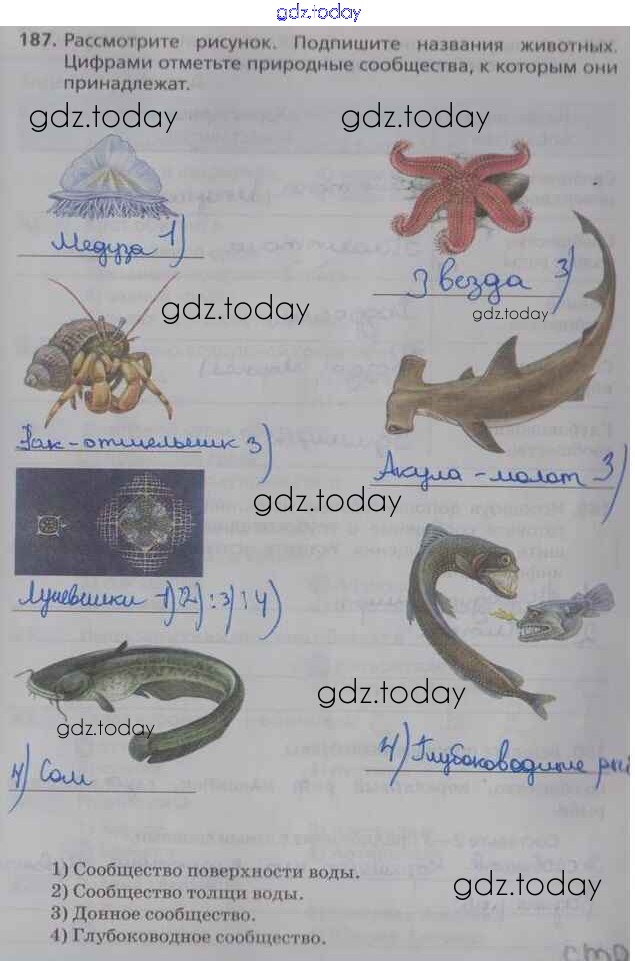 gdz.today
187. Рассмотрите рисунок. Подпишите названия животных.
Цифрами отметьте природные сообщества, к которым они
принадлежат.
gdz.today gdz.today
Медуза 1)
Звезда 3)
gdz.today
gdz.today
Рак-отшельник 3)
Акула-молот 3)
gdz.today
Лучевики 1) 2) 3) 4)
gdz.today
gdz.today
4) Сом
4) Глубоководные ры
1) Сообщество поверхности воды.
2) Сообщество толщи воды.
3) Донное сообщество.
4) Глубоководное сообщество.
gdz.today